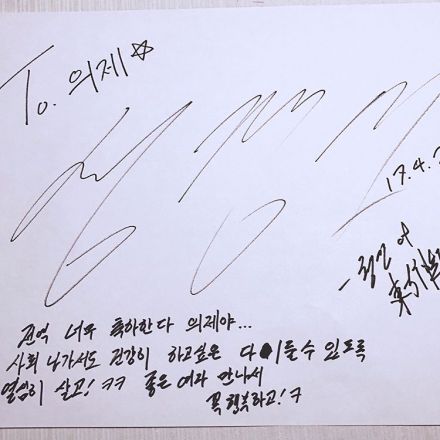 To. 의제☆
17.4.
전역 너무 축하한다 의제야...
사회 나가서도 건강히 하고싶은 다 이룰수 있도록
열심히 살고! ㅋㅋ 좋은 여자 만나서
꼭 행복하고! ㅋ